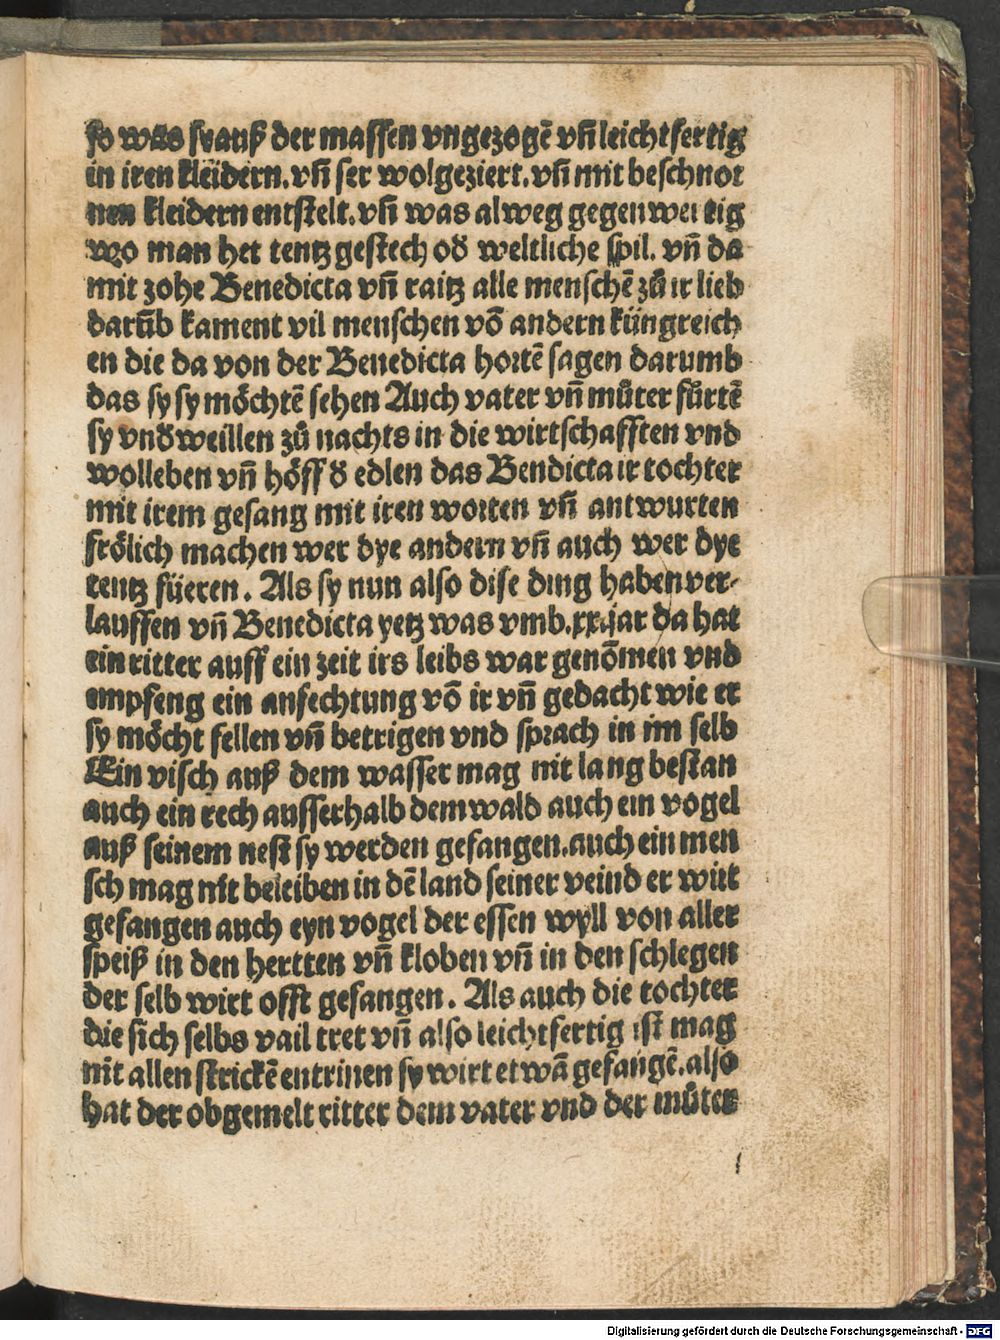 so was sy auß der massen vngezogē vn̄ leichtfertig
in iren kleidern. vn̄ ser wolgeziert. vn̄ mit beschnot
nen kleidern entstelt. vn̄ was alweg gegenwertig
wo man het tentz gestech oď weltliche spil. vn̄ da
mit zohe Benedicta vn̄ raitz alle menschē zů ir lieb
darūb kament vil menschen vō andern küngreich
en die da von der Benedicta hortē sagen darumb
das sy sy möchtē sehen Auch vater vn̄ můter fůrtē
sy vnďweillen zů nachts in die wirtschafften vnd
wolleben vn̄ höff ď edlen das Bendicta ir tochter
mit irem gesang mit iren worten vn̄ antwurten
frölich machen wer dye andern vn̄ auch wer dye
tentz füeren. Als sy nun also dise ding haben ver-
lauffen vn̄ Benedicta yetz was vmb.xx.jar da hat
ein ritter auff ein zeit irs leibs war genōmen vnd
empfeng ein anfechtung vō ir vn̄ gedacht wie er
sy möcht fellen vn̄ betrigen vnd sprach in im selb
Ein visch auß dem wasser mag nit lang bestan
auch ein rech ausserhalb dem wald auch ein vogel
auß seinem nest sy werden gefangen. auch ein men
sch mag nit beleiben in dē land seiner veind er wirt
gefangen auch eyn vogel der essen wyll von aller
speiß in den hertten vn̄ kloben vn̄ in den schlegen
der selb wirt offt gefangen. Als auch die tochter
die sich selbs vail tret vn̄ also leichtfertig ist mag
nit allen strickē entrinen sy wirt etwā gefangē. also
hat der obgemelt ritter dem vater vnd der můter
Digitalisierung gefördert durch die Deutsche Forschungsgemeinschaft - DFG